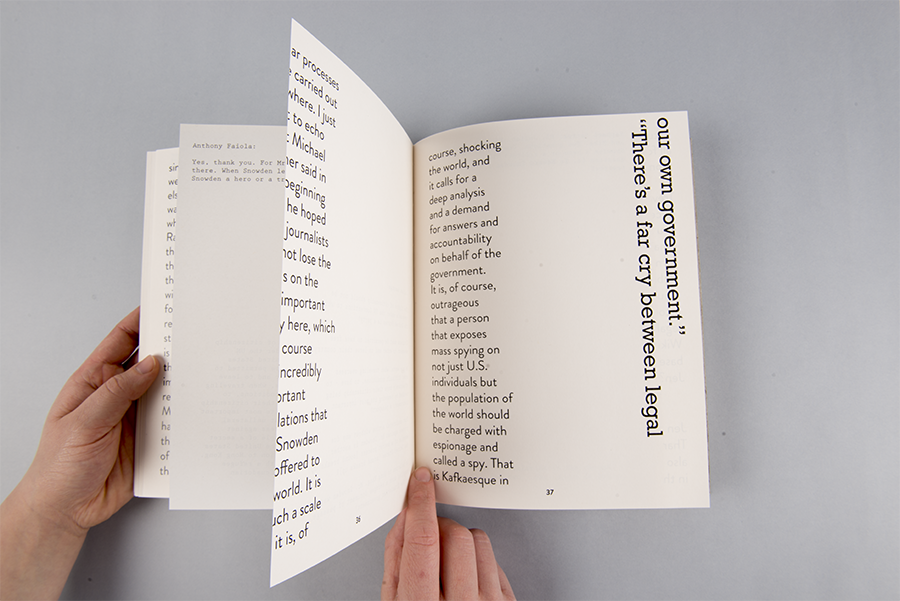 sin
we
els
wa
wh
Ra
th
th
th
wi
fo
re
st
is
th
im
re
M
ha
th
of
th
Anthony Faiola:
Yes, thank you. For Mr
there. When Snowden le
Snowden a hero or a tr
ar processes
e carried out
where. I just
t to echo
t Michael
ner said in
beginning
he hoped
journalists
not lose the
s on the
important
y here, which
course
ncredibly
ortant
lations that
Snowden
offered to
world. It is
uch a scale
it is, of
36
course, shocking
the world, and
it calls for a
deep analysis
and a demand
for answers and
accountability
on behalf of the
government.
It is, of course,
outrageous
that a person
that exposes
mass spying on
not just U.S.
individuals but
the population of
the world should
be charged with
espionage and
called a spy. That
is Kafkaesque in
37
our own government.”
“There's a far cry between legal